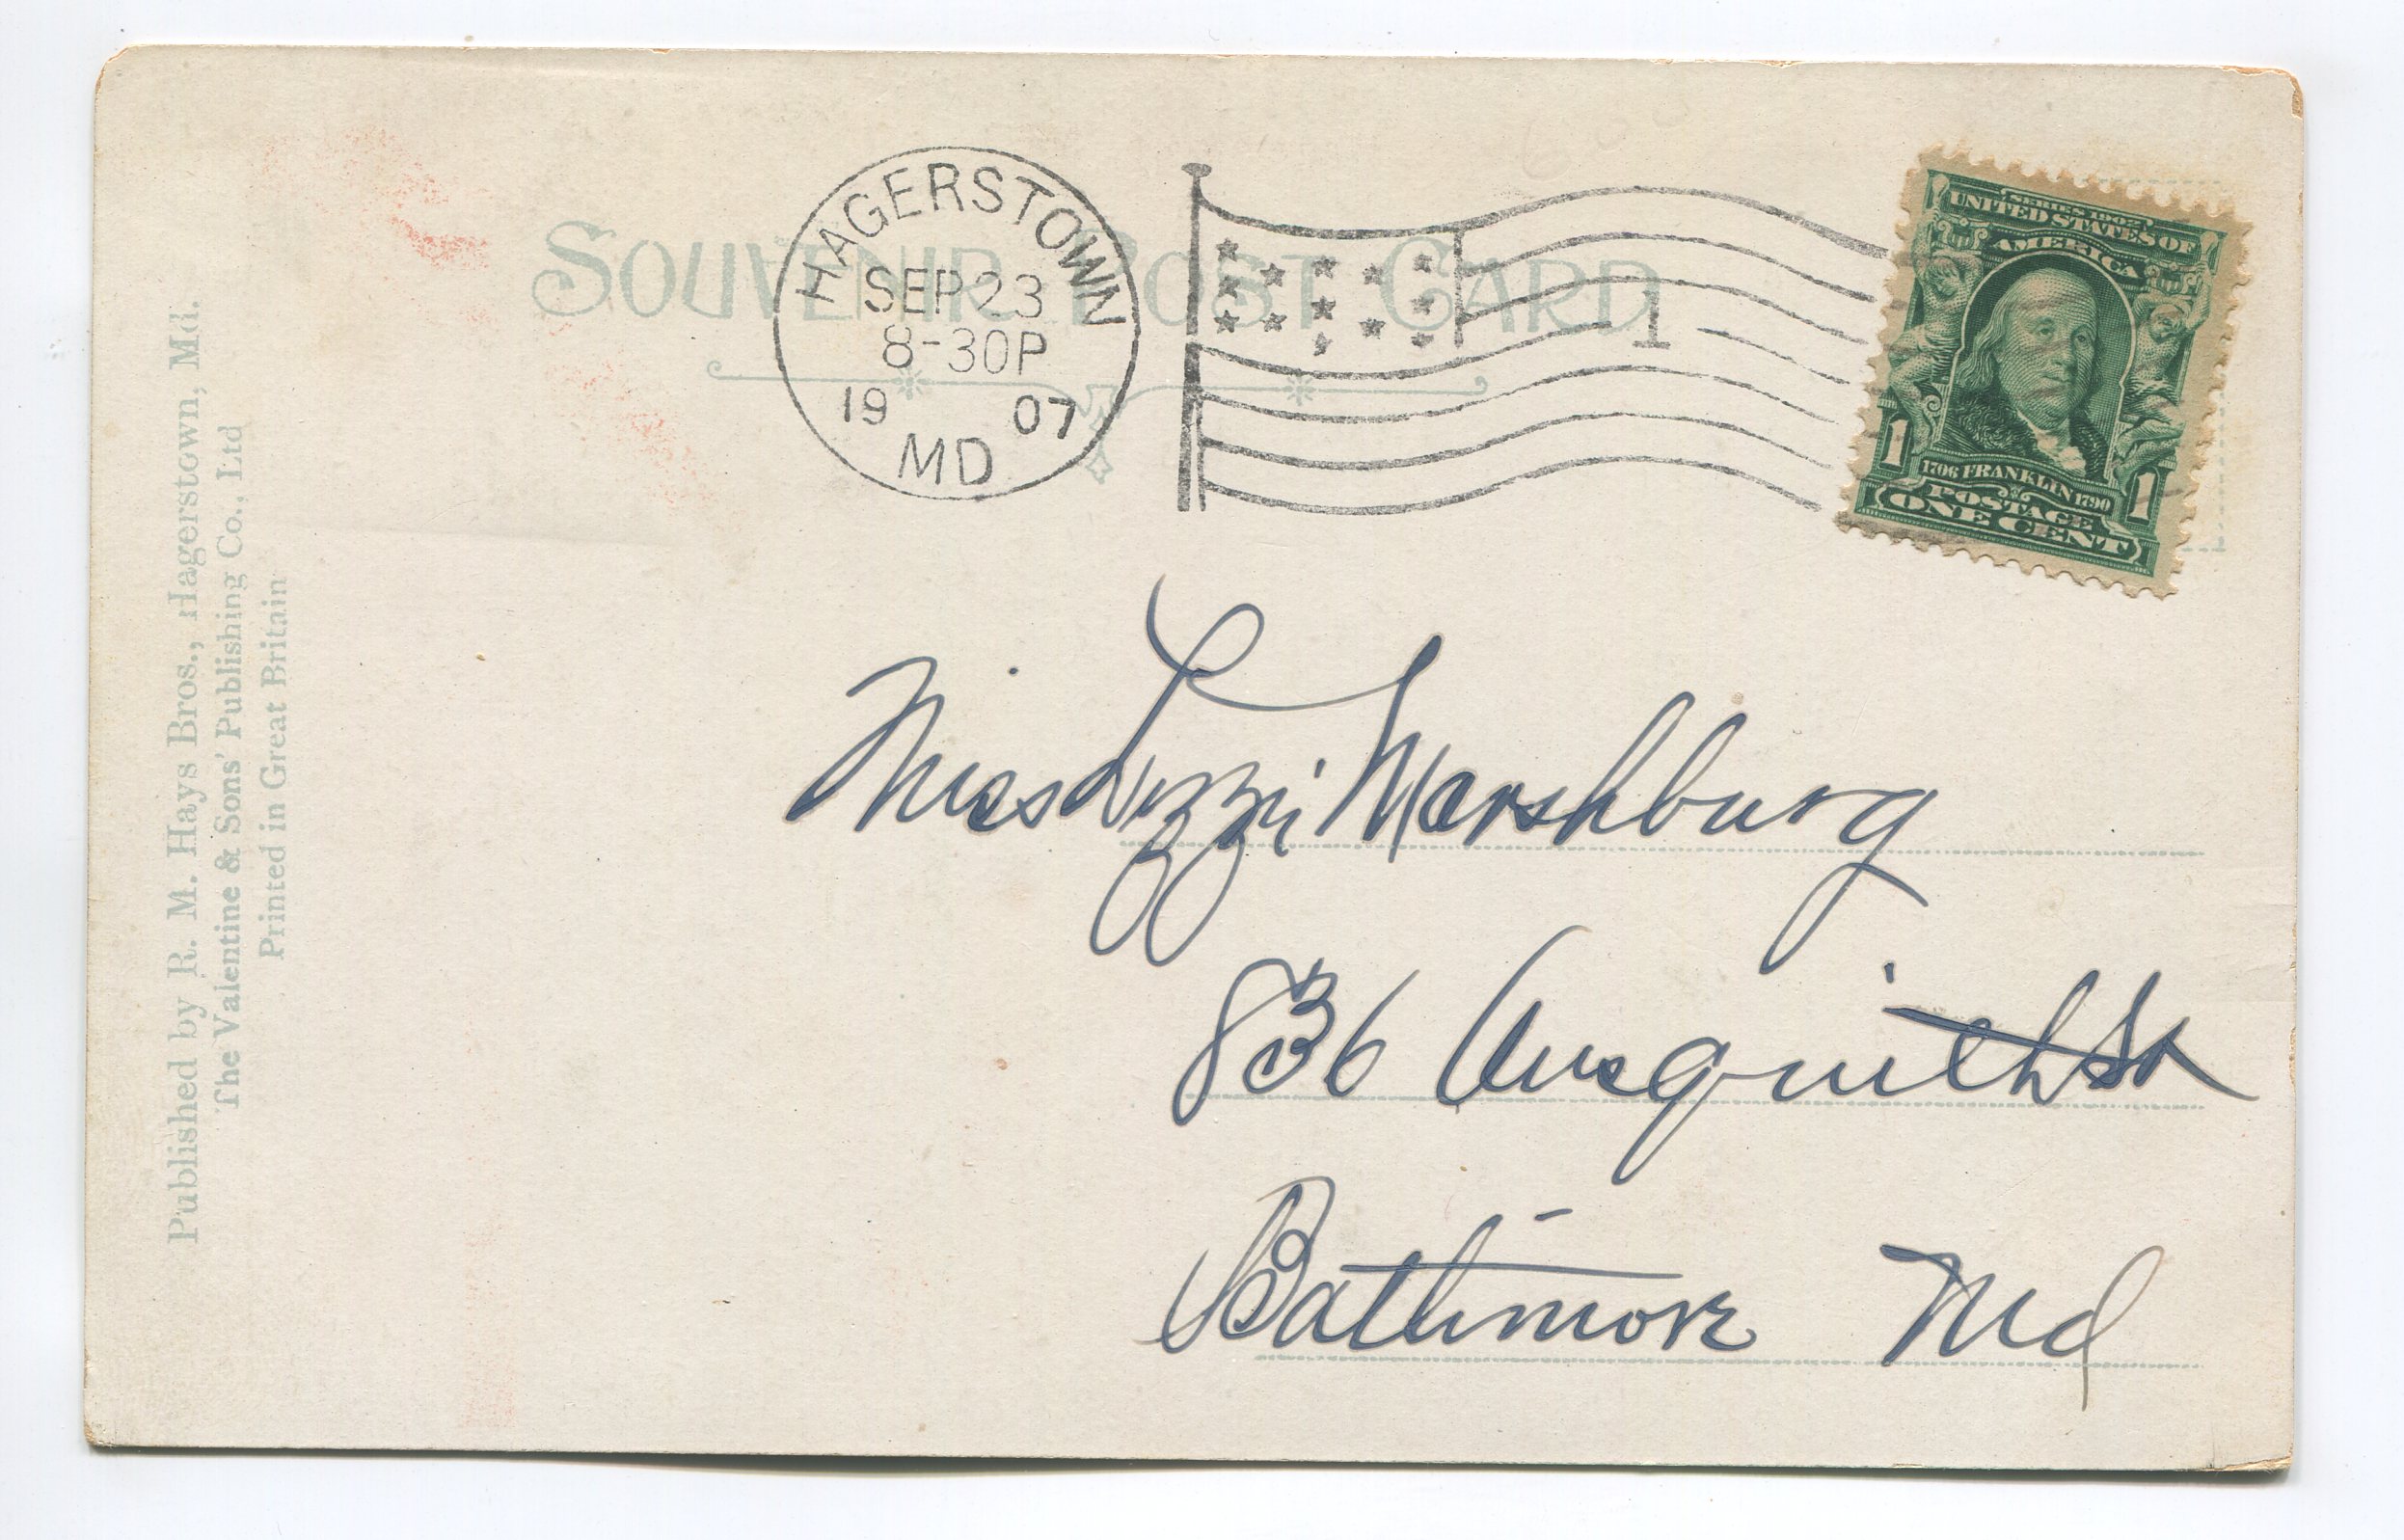 SOUVENIR POST CARD
HAGERSTOWN
SEP 23
8-30P
19 07
MD.
1
SERIES 1902
UNITED STATES OF
AMERICA
1706 FRANKLIN 1790
1 POSTAGE 1
ONE CENT
Published by R. M. Hays Bros., Hagerstown, Md.
The Valentine & Sons' Publishing Co., Ltd
Printed in Great Britain
Miss Lizzi Marshburg
836 Ausquith St
Baltimore Md